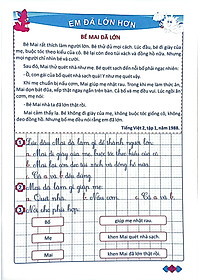 EM ĐÃ LỚN HƠN
BÉ MAI ĐÃ LỚN
Bé Mai rất thích làm người lớn. Bé thử đủ mọi cách. Lúc đầu, bé đi giày của
mẹ, buộc tóc theo kiểu của cô. Bé lại còn đeo túi xách và đồng hồ nữa. Nhưng
mọi người chỉ nhìn bé và cười.
Sau đó, Mai thử quét nhà như mẹ. Bé quét sạch đến nỗi bố phải ngạc nhiên:
- Ồ, con gái của bố quét nhà sạch quá! Y như mẹ quét vậy.
Khi mẹ chuẩn bị nấu cơm, Mai giúp mẹ nhặt rau. Trong khi mẹ làm thức ăn,
Mai dọn bát đũa, xếp thật ngay ngắn trên bàn. Cả bố và mẹ đều vui. Lúc ngồi ăn
cơm, mẹ nói:
- Bé Mai nhà ta đã lớn thật rồi.
Mai cảm thấy lạ. Bé không đi giày của mẹ, không buộc tóc giống cô, không
đeo đồng hồ. Nhưng bố mẹ đều nói rằng em đã lớn.
Tiếng Việt 2, tập 1, năm 1988.
1 Lúc đầu Mai đã làm gì để thành người lớn.
a. Mai đi giày của mẹ, buộc tóc theo kiểu của cô
b. Mai lại còn đeo túi xách và đồng hồ nữa.
c. Cả a và b đều đúng.
2 Mai đã làm gì giúp mẹ.
a. Quét nhà b. Nấu cơm c. Cả a, b.
3 Nối cho phù hợp:
Bố
giúp mẹ nhặt rau.
Mẹ
khen Mai quét nhà sạch.
Mai
khen Mai đã lớn thật rồi.